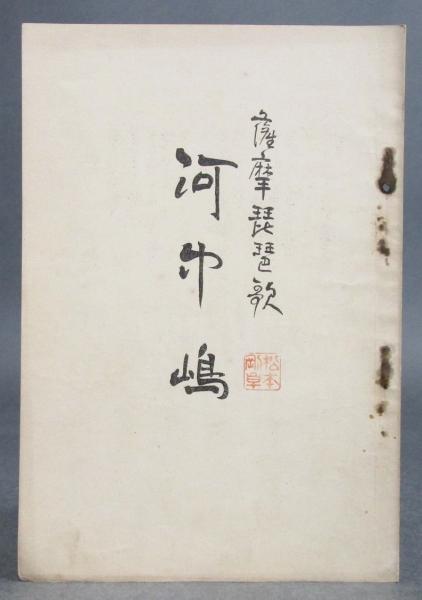 薩摩琵琶歌
河中嶋
松本
岡阜